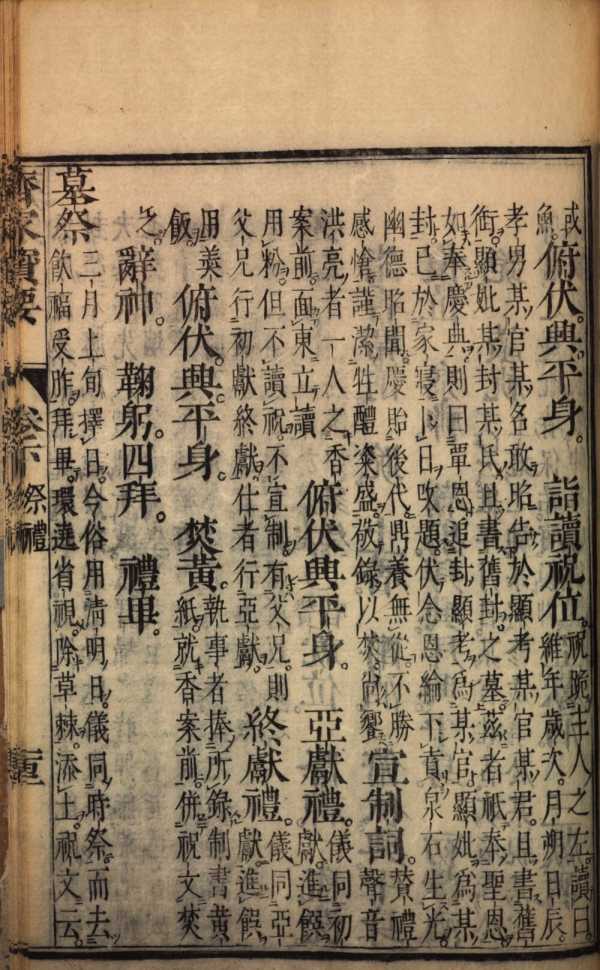 或
魚。俯伏興平身。 詣讀祝位。祝跪主人之左。讀曰。
維年歲次。月朔日辰。
孝男某官某名敢昭告於顯考某官某君。且書舊
銜。顯妣某封某氏。且書舊封。之墓。茲者祇奉聖恩。
如奉慶典則曰覃恩追封顯考為某官顯妣為某
封。已於家寢卜日改題。伏念恩綸下賁泉石生光。
幽德昭聞。慶貽後代鼎養無從。不勝
感愴。謹潔牲醴粢盛。敬錄以焚。尚饗 宣制詞。贊禮
聲音
洪亮者一人之香
案前。面東立讀 俯伏興平身。 亞獻禮。儀同初
獻進饌
用粉。但不讀祝。不宣制。有父兄。則
父兄行初獻終獻。仕者行亞獻。 終獻禮。儀同亞
獻。進饌
用羹
飯。 俯伏興平身。 焚黃。執事者捧所錄制書黃
紙就香案前。併祝文焚
之。辭神。 鞠躬。四拜。 禮畢。
墓祭 三月上旬擇日。今俗用清明日。儀同時祭。而去
飲福受胙拜畢。環遶省視。除草棘。添土。祝文云。
齊家寶要 祭禮